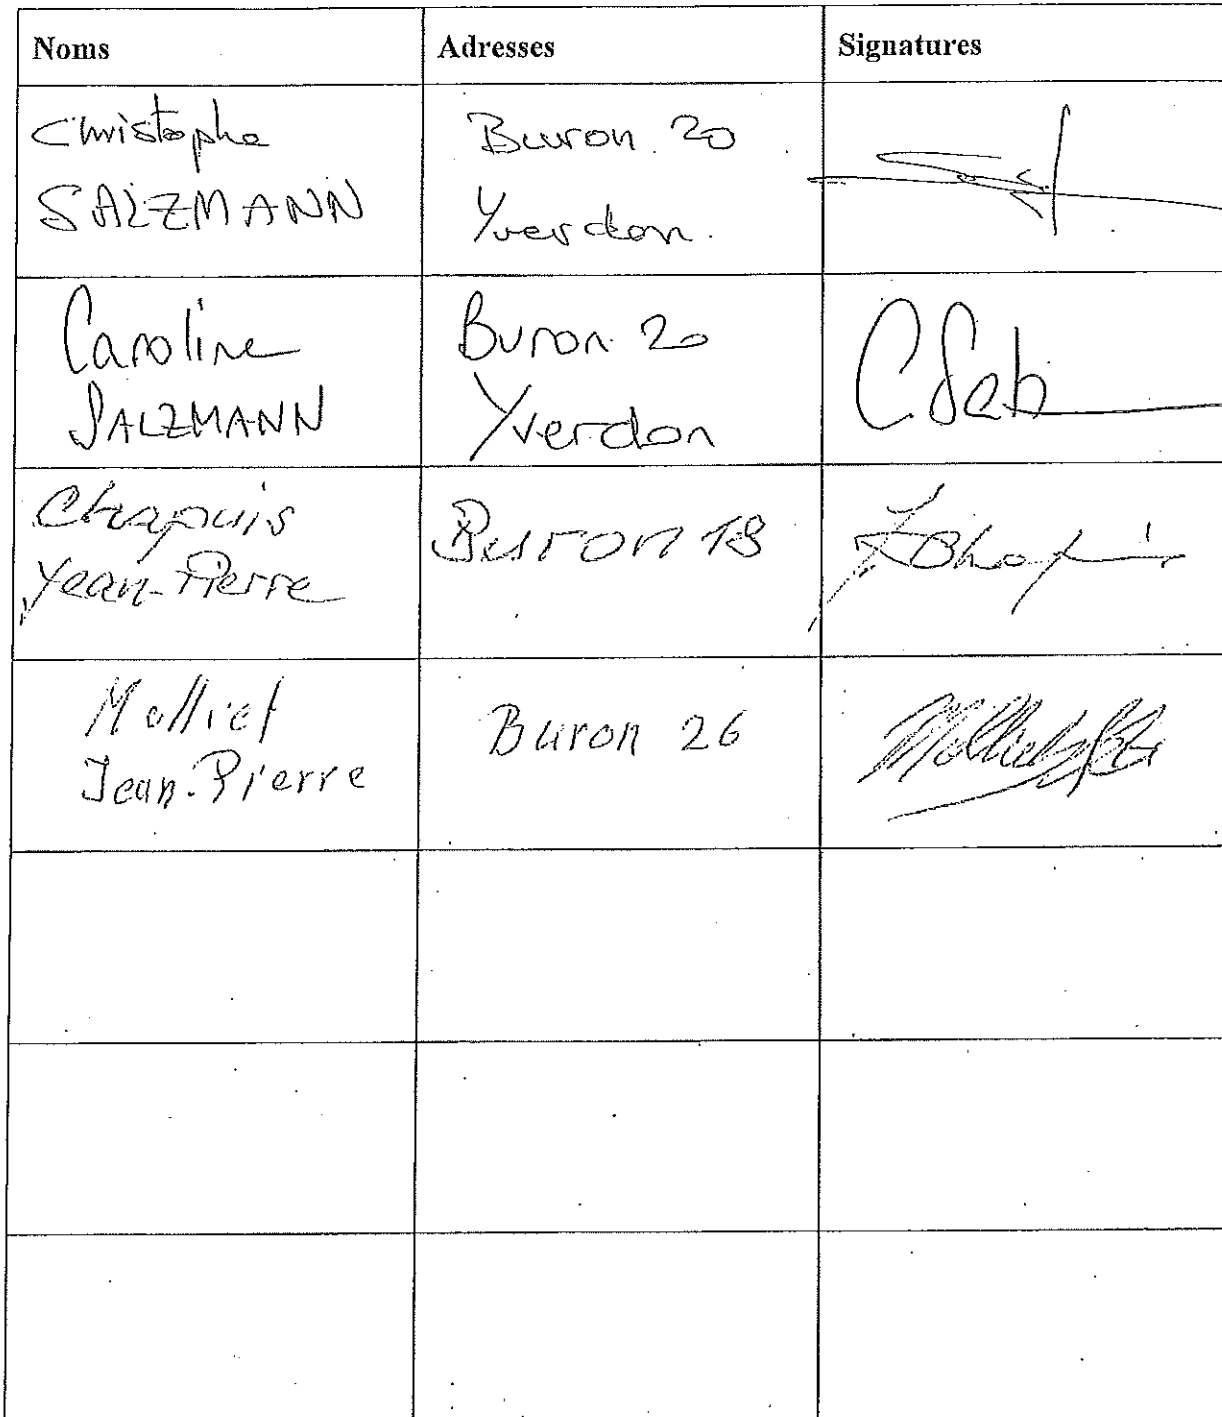 Noms Adresses Signatures
Christophe
SALZMANN
Buron 20
Yverdon.
Caroline
SALZMANN
Buron 20
Yverdon
Chapuis
Jean-Pierre
Buron 18
Molliet
Jean-Pierre
Buron 26